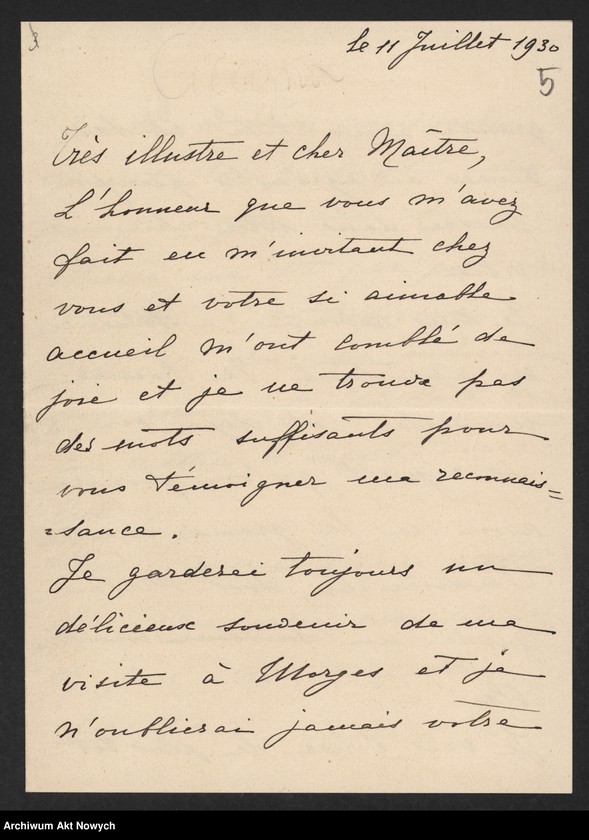 3
le 11 Juillet 1930
5
Très illustre et cher Maître,
L'honneur que vous m'avez
fait en m'invitant chez
vous et votre si aimable
accueil m'ont comblé de
joie et je ne trouve pas
des mots suffisants pour
vous témoigner ma reconnais=
=sance.
Je garderai toujours un
délicieux souvenir de ma
visite à Morges et je
n'oublierai jamais votre
Archiwum Akt Nowych